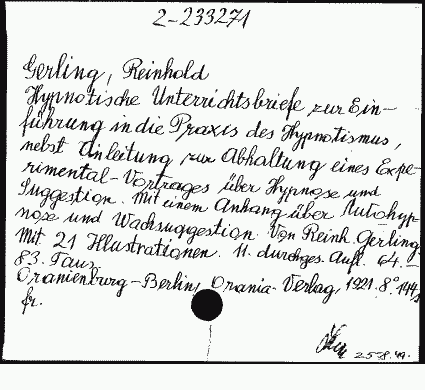 2-233271
Gerling, Reinhold
Hypnotische Unterrichtsbriefe zur Ein-
führung in die Praxis des Hypnotismus,
nebst Anleitung zur Abhaltung eines Expe-
rimental-Vortrages über Hypnose und
Suggestion. Mit einem Anhang über Autohyp-
nose und Wachsuggestion. Von Reinh. Gerling.
Mit 21 Illustrationen. 11. durchges. Aufl. 64.-
83. Taus.
Oranienburg-Berlin, Orania-Verlag, 1921. 8° 144 S.
fr.
25 8. 49.